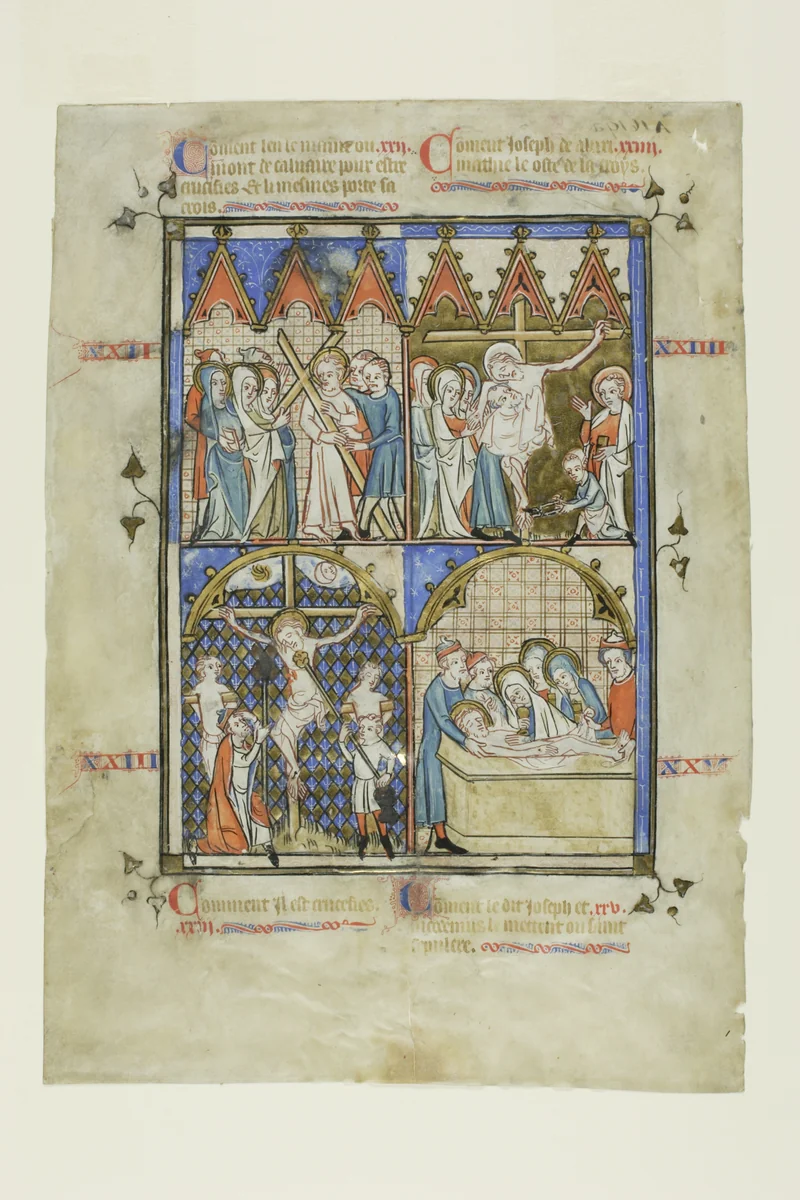 Coment len le maine ou .xxii.
mont de caluaire pour estre
crucefies. Et li mesmes porte sa
crois.
Coment Joseph de .xxiiii.
mathie le oste de la croys.
XXII
XXIIII
XXIII
XXV
Comment Il est crucefies.
.xxiii.
Coment le dit Joseph et .xxv.
le mettent ou saint
sepulcre.